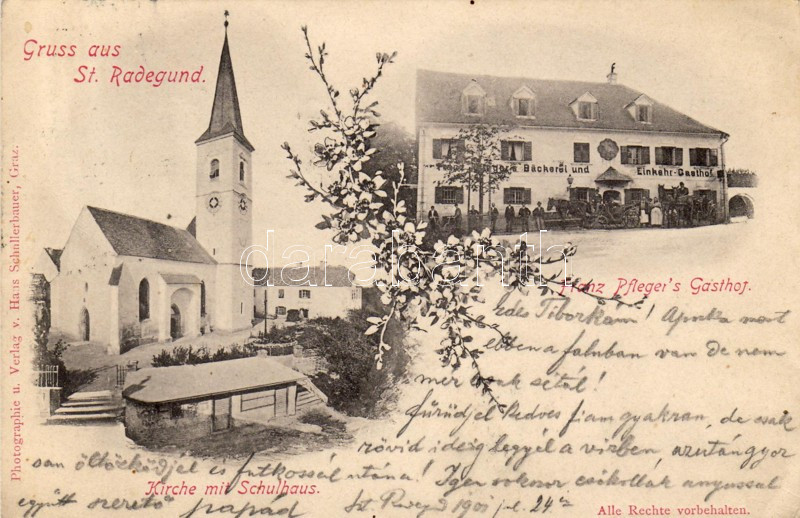 Gruss aus
St. Radegund.
Franz Pfleger's Bäckerei und Einkehr-Gasthof
Franz Pfleger's Gasthof.
Photographie u. Verlag v. Hans Schullerbauer, Graz.
darabanth
Édes Tiborkám! Apuka most
ebben a faluban van de nem
sétál!
Fürüdjél kedves fiam gyakran, de csak
rövid ideig legyél a vizben azután gyor
san öltözködjél és futkossál utána! Igen sokszor csókollak anyussal
együtt szerető papád St. 1901 24
Kirche mit Schulhaus.
Alle Rechte vorbehalten.